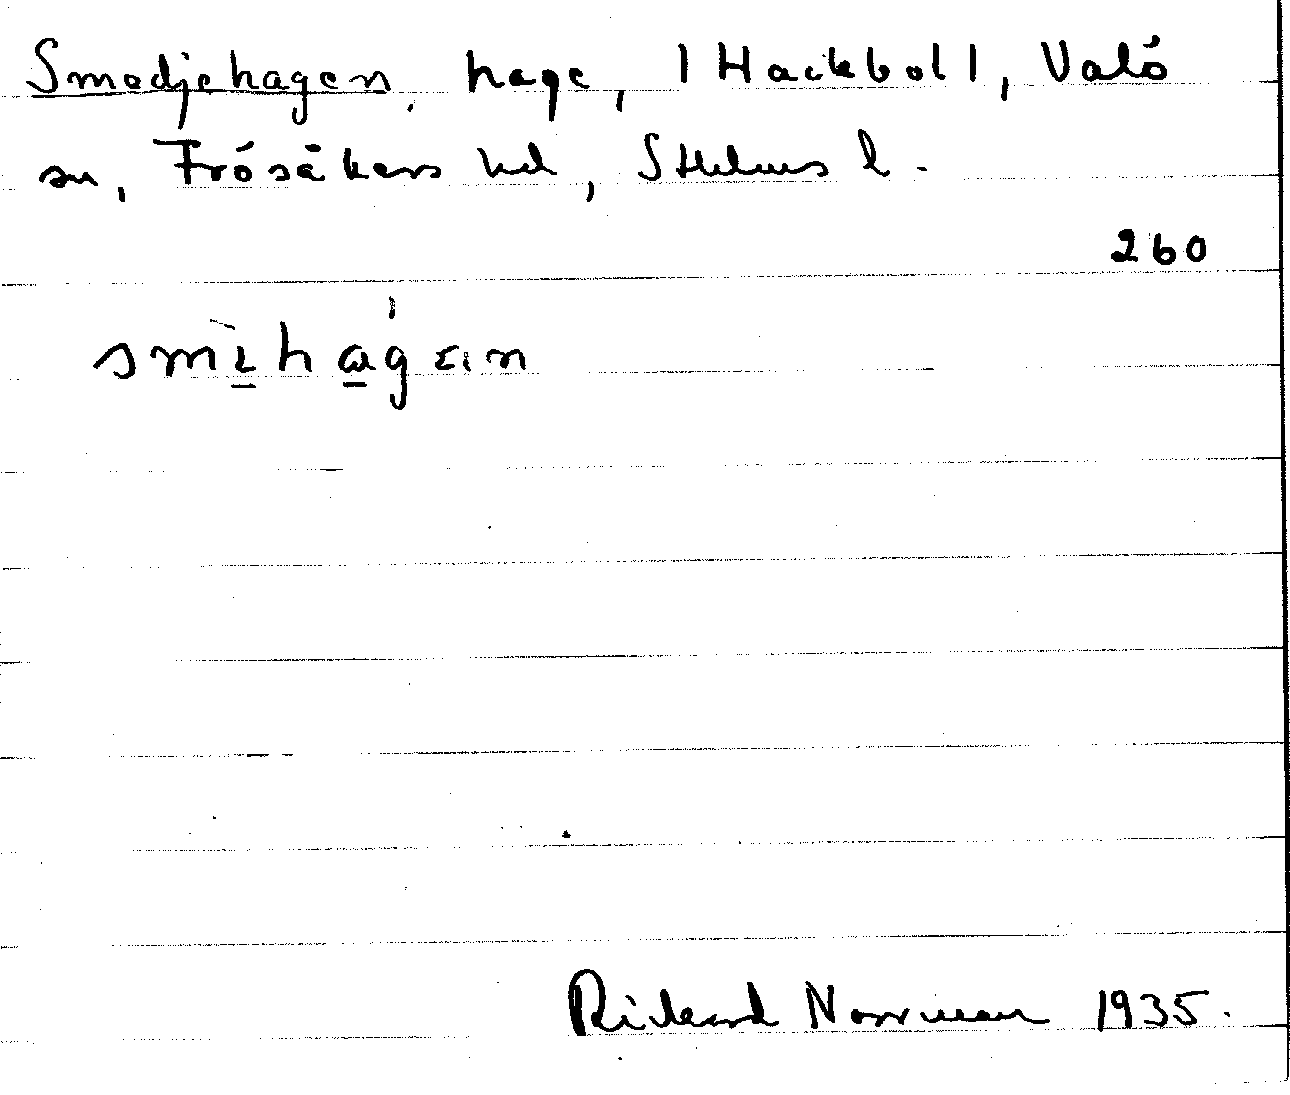 Smedjehagen, hage, i Hackboll, Valö
sn, Frösåkers hd, Sthlms l.
260
Rickard Norrman 1935.